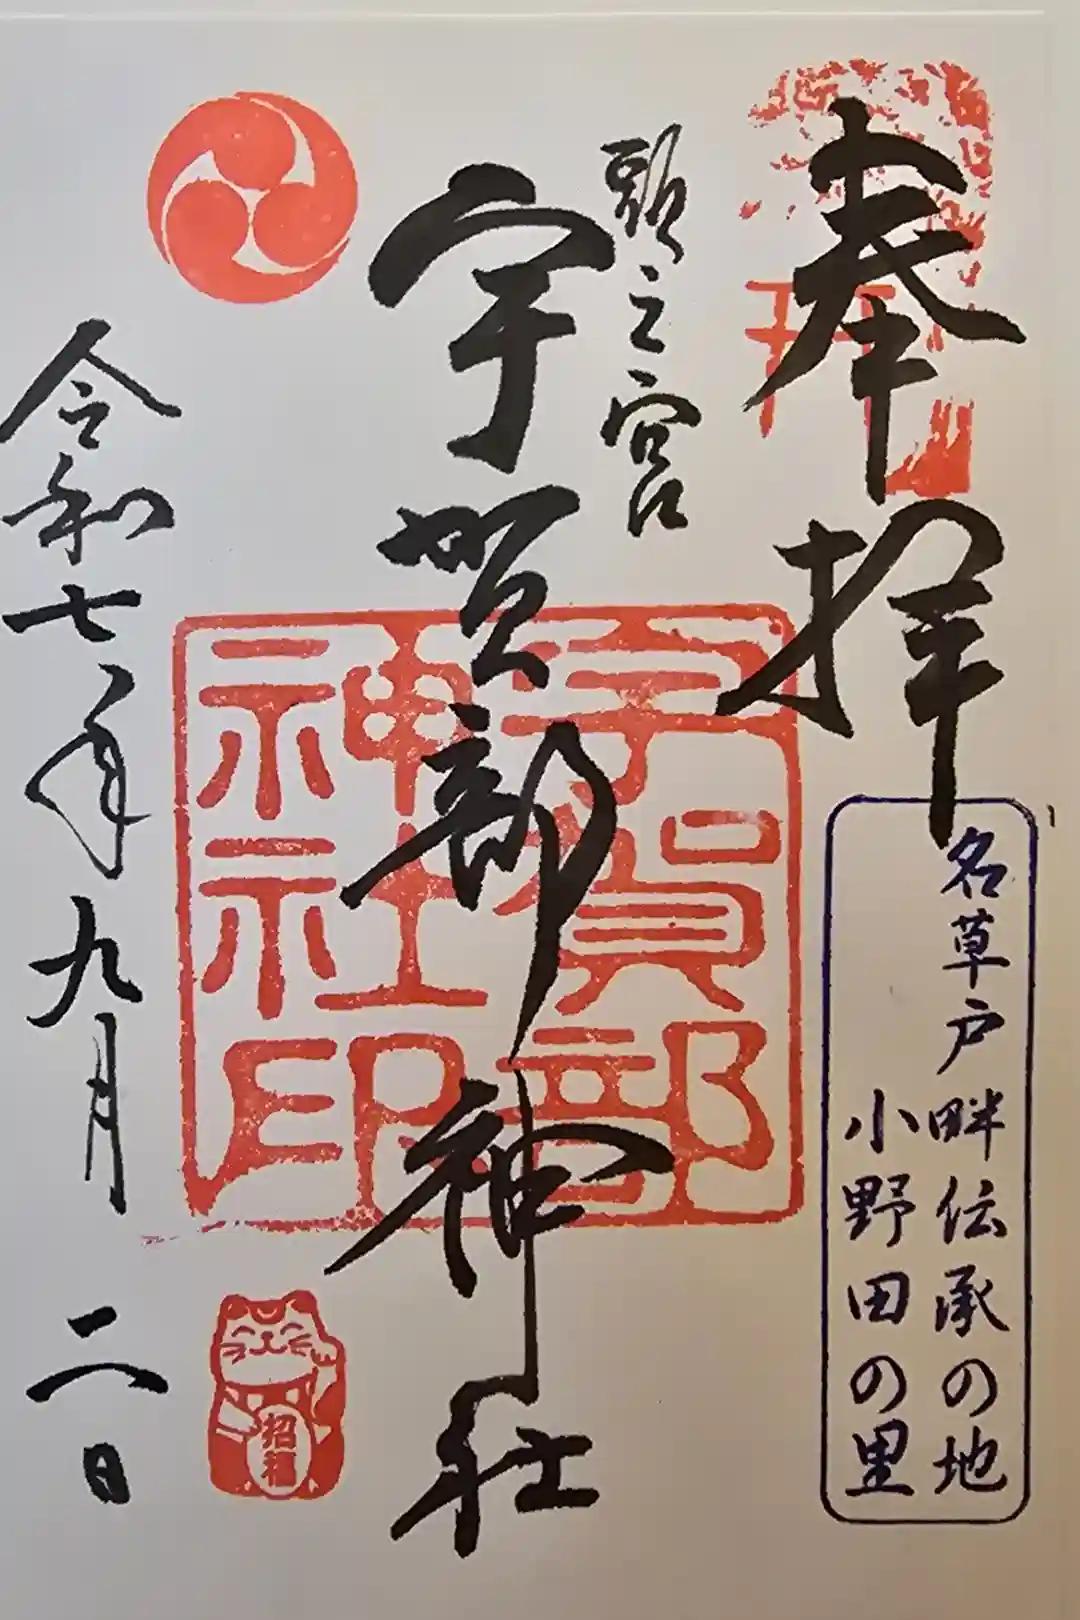 奉拝
名草戸畔伝承の地
小野田の里
頭之宮
宇賀部神社
宇賀部
神社
印
招福
令和七年九月二日